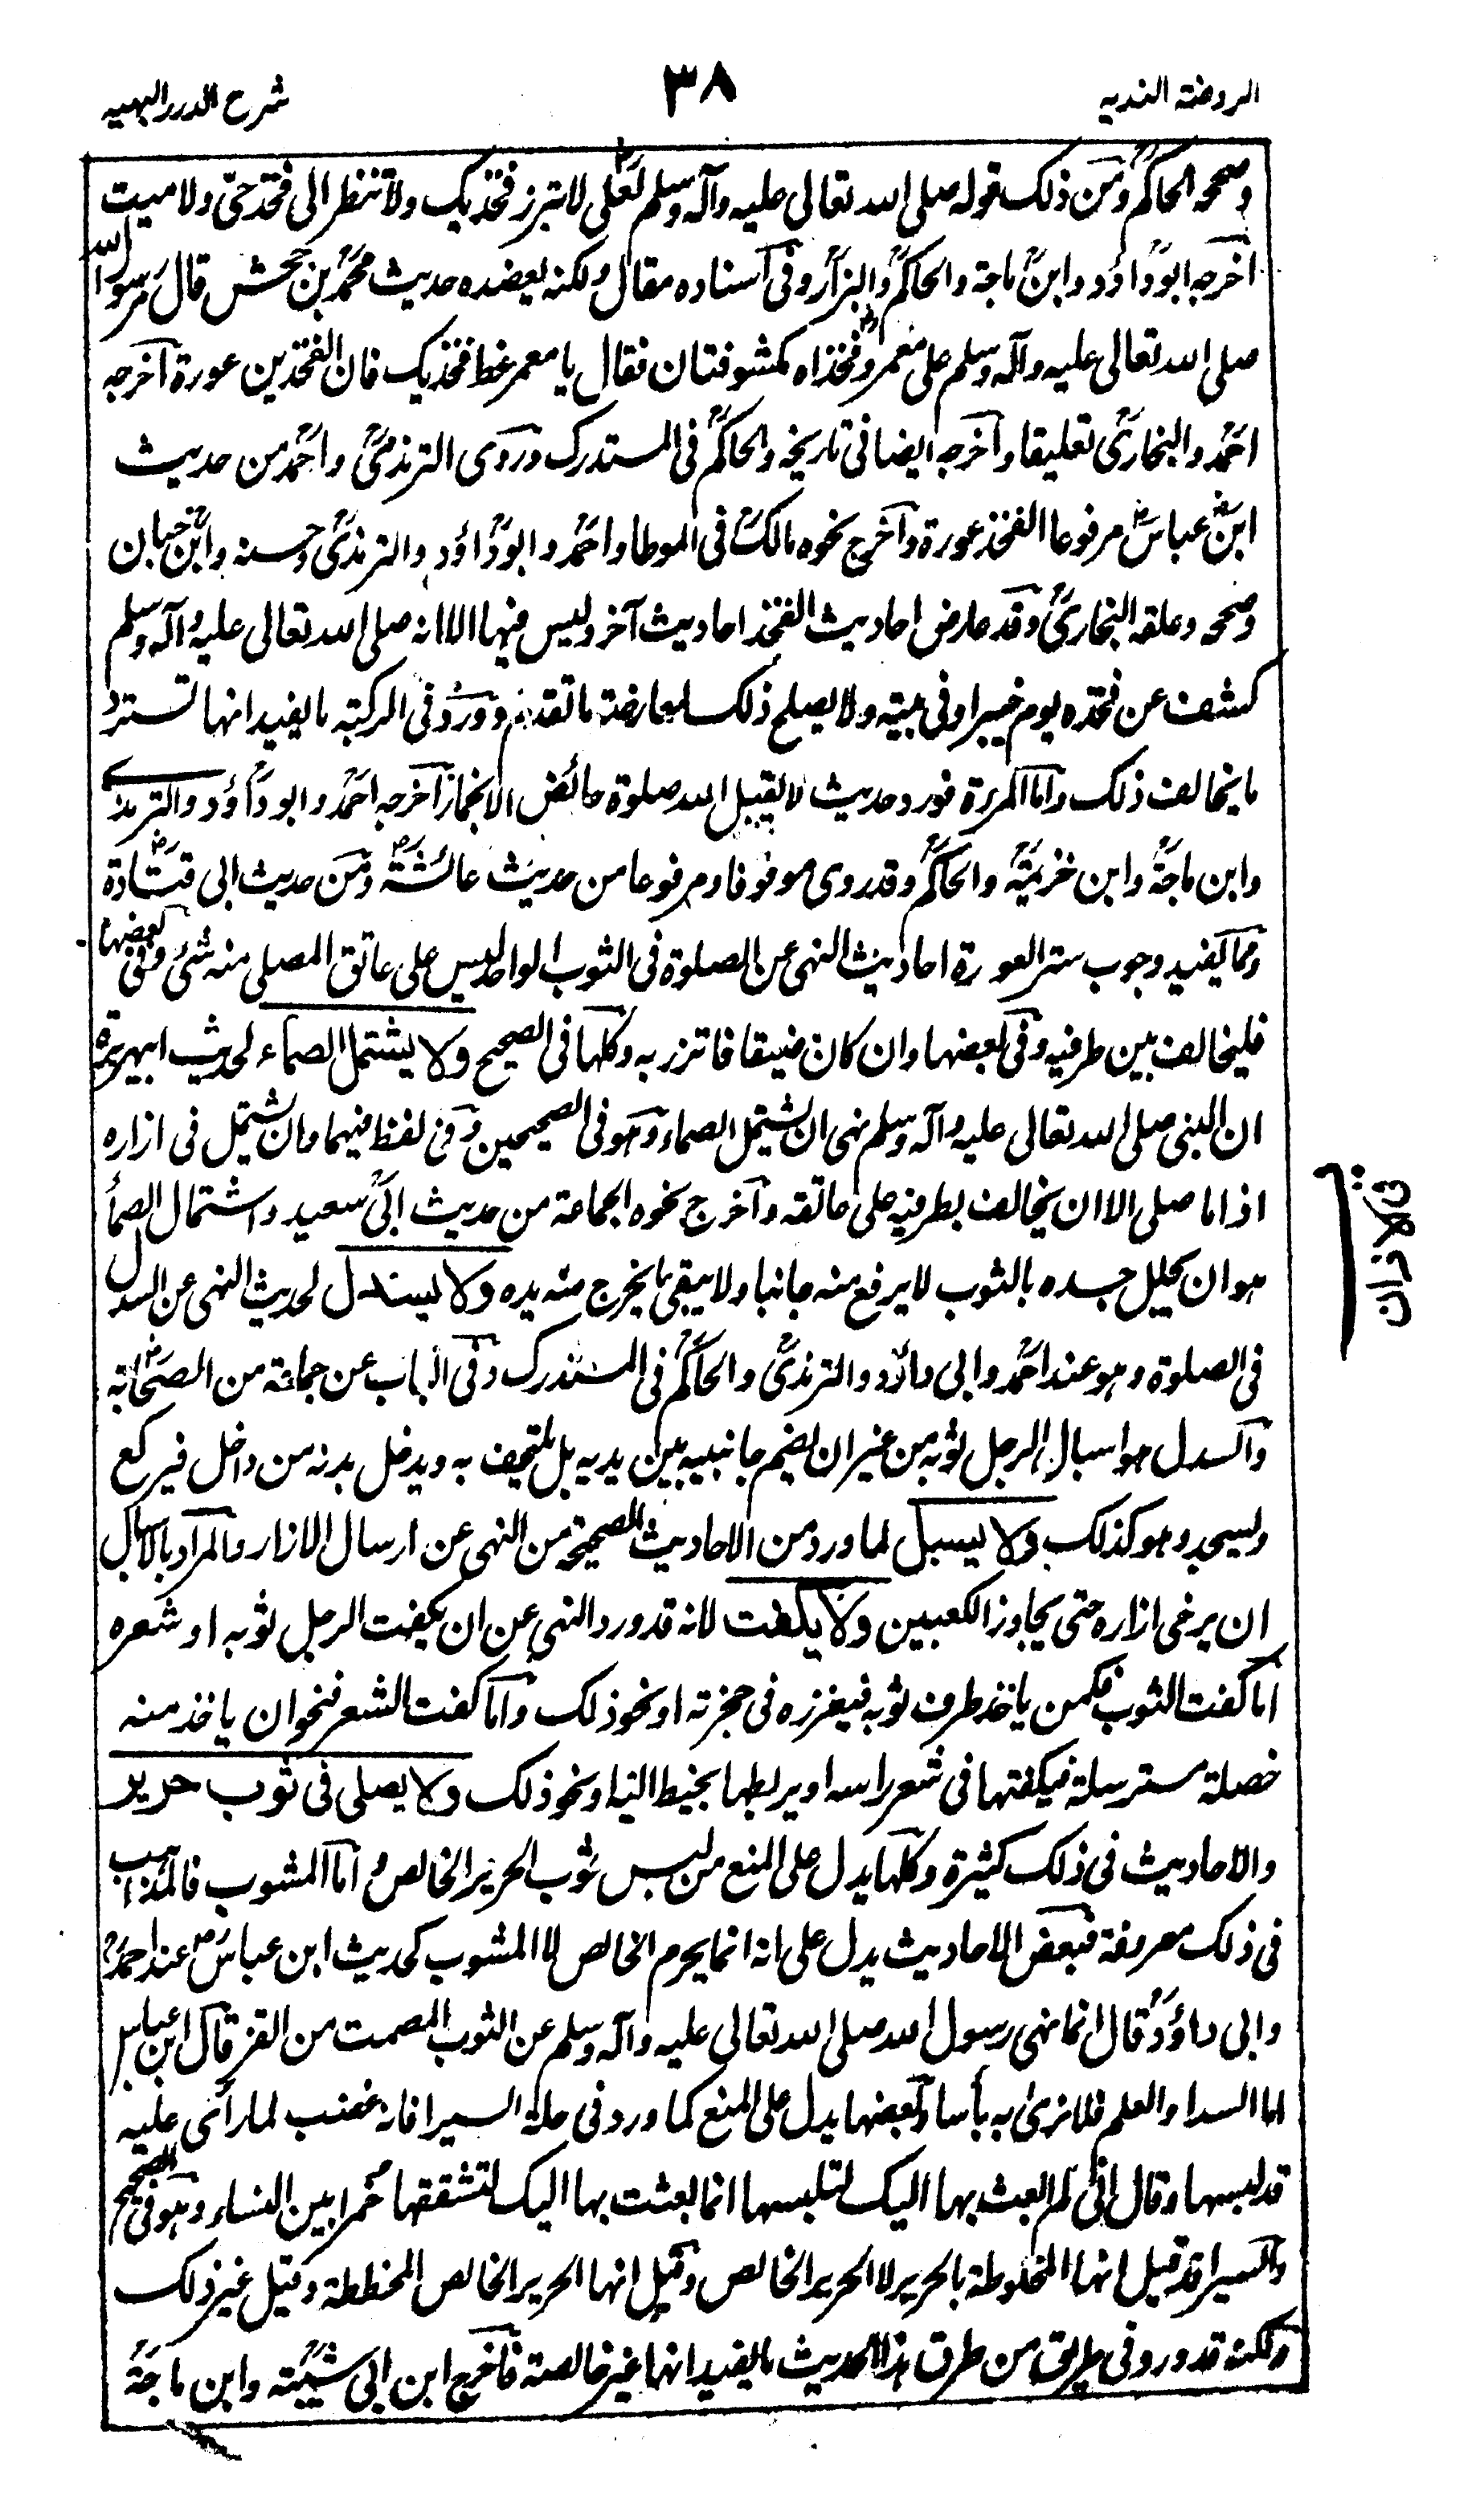 الروضة الندية ٣٨ شرح الدرر البهية
وصححه الحاكم ومن ذلك قوله صلى الله تعالى عليه وآله وسلم لعلى لا تبرز فخذيك ولا تنظر الى فخذ حى ولا ميت
اخرجه ابو داؤد وابن ماجة والحاكم والبزار وفى اسناده مقال ولكنه يعضده حديث محمد بن جحش قال مر رسول الله
صلى الله تعالى عليه وآله وسلم على معمر وفخذاه مكشوفتان فقال يا معمر غط فخذيك فان الفخذين عورة اخرجه
احمد والبخارى تعليقا واخرجه ايضا فى تاريخه والحاكم فى المستدرك وروى الترمذى واحمد من حديث
ابن عباس مرفوعا الفخذ عورة واخرج نحوه مالك فى الموطا واحمد وابو داؤد والترمذى وحسنه وابن حبان
وصححه وعلقه البخارى وقد عارض احاديث الفخذ احاديث آخر وليس فيها الا انه صلى الله تعالى عليه وآله وسلم
كشف عن فخذه يوم خيبر او فى بيته ولا يصلح ذلك لمعارضة ما تقدم وورد فى الركبة ما يفيد انها تستر و
ما يخالف ذلك واما المرءة فورد حديث لا يقبل الله صلوة حائض الا بخمار اخرجه احمد وابو داؤد والترمذى
وابن ماجة وابن خزيمة والحاكم وقد روى موقوفا ومرفوعا من حديث عائشة ومن حديث ابى قتادة
ومما يفيد وجوب ستر العورة احاديث النهى عن الصلوة فى الثوب الواحد ليس على عاتق المصلى منه شئ وفى بعضها
فليخالف بين طرفيه وفى بعضها وان كان ضيقا فاتزر به وكلها فى الصحيح ولا يشتمل الصماء لحديث ابى هريرة
ان النبى صلى الله تعالى عليه وآله وسلم نهى ان يشتمل الصماء وهو فى الصحيحين وفى لفظ فيهما وان يشتمل فى ازاره
اذا ما صلى الا ان يخالف بطرفيه على عاتقه واخرج نحوه الجماعة من حديث ابى سعيد واشتمال الصماء
هو ان يجلل جسده بالثوب لا يرفع منه جانبا ولا يبقى ما يخرج منه يده ولا يسدل لحديث النهى عن السدل
فى الصلوة وهو عند احمد وابى داؤد والترمذى والحاكم فى المستدرك وفى الباب عن جماعة من الصحابة
والسدل هو اسبال الرجل ثوبه من غير ان يضم جانبيه بين يديه بل يلتحف به ويدخل يديه من داخل فيركع
ويسجد وهو كذلك ولا يسبل لما ورد من الاحاديث الصحيحة من النهى عن ارسال الازار والمراد بالاسبال
ان يرخى ازاره حتى يجاوز الكعبين ولا يكفت لانه قد ورد النهى عن ان يكفت الرجل ثوبه او شعره
اما كفت الثوب فكمن ياخذ طرف ثوبه فيغرزه فى حجزته او نحو ذلك واما كفت الشعر فنحو ان ياخذ منه
خصلة مسترسلة فيكفتها فى شعر راسه او يربطها بخيط اليها او نحو ذلك ولا يصلى فى ثوب حرير
والاحاديث فى ذلك كثيرة وكلها يدل على المنع من لبس ثوب الحرير الخالص واما المشوب فالمذاهب
فى ذلك معروفة فبعض الاحاديث يدل على انه انما يحرم الخالص لا المشوب كحديث ابن عباس عند احمد
وابى داؤد قال انما نهى رسول الله صلى الله تعالى عليه وآله وسلم عن الثوب المصمت من القز قال ابن عباس
اما السدا والعلم فلا نرى به بأسا وبعضها يدل على المنع كما ورد فى حلة السيرا فانه غضب لما رأى عليه
قد لبسها وقال انى لم ابعث بها اليك لتلبسها انما بعثت بها اليك لتشققها خمرا بين النساء وهو فى الصحيح
والسيرا قد قيل انها المخلوطة بالحرير لا الحرير الخالص وقيل انها الحرير الخالص المخططة وقيل غير ذلك
ولكنه قد ورد فى طريق من طرق هذا الحديث ما يفيد انها غير خالصة فاخرج ابن ابى شيبة وابن ماجة